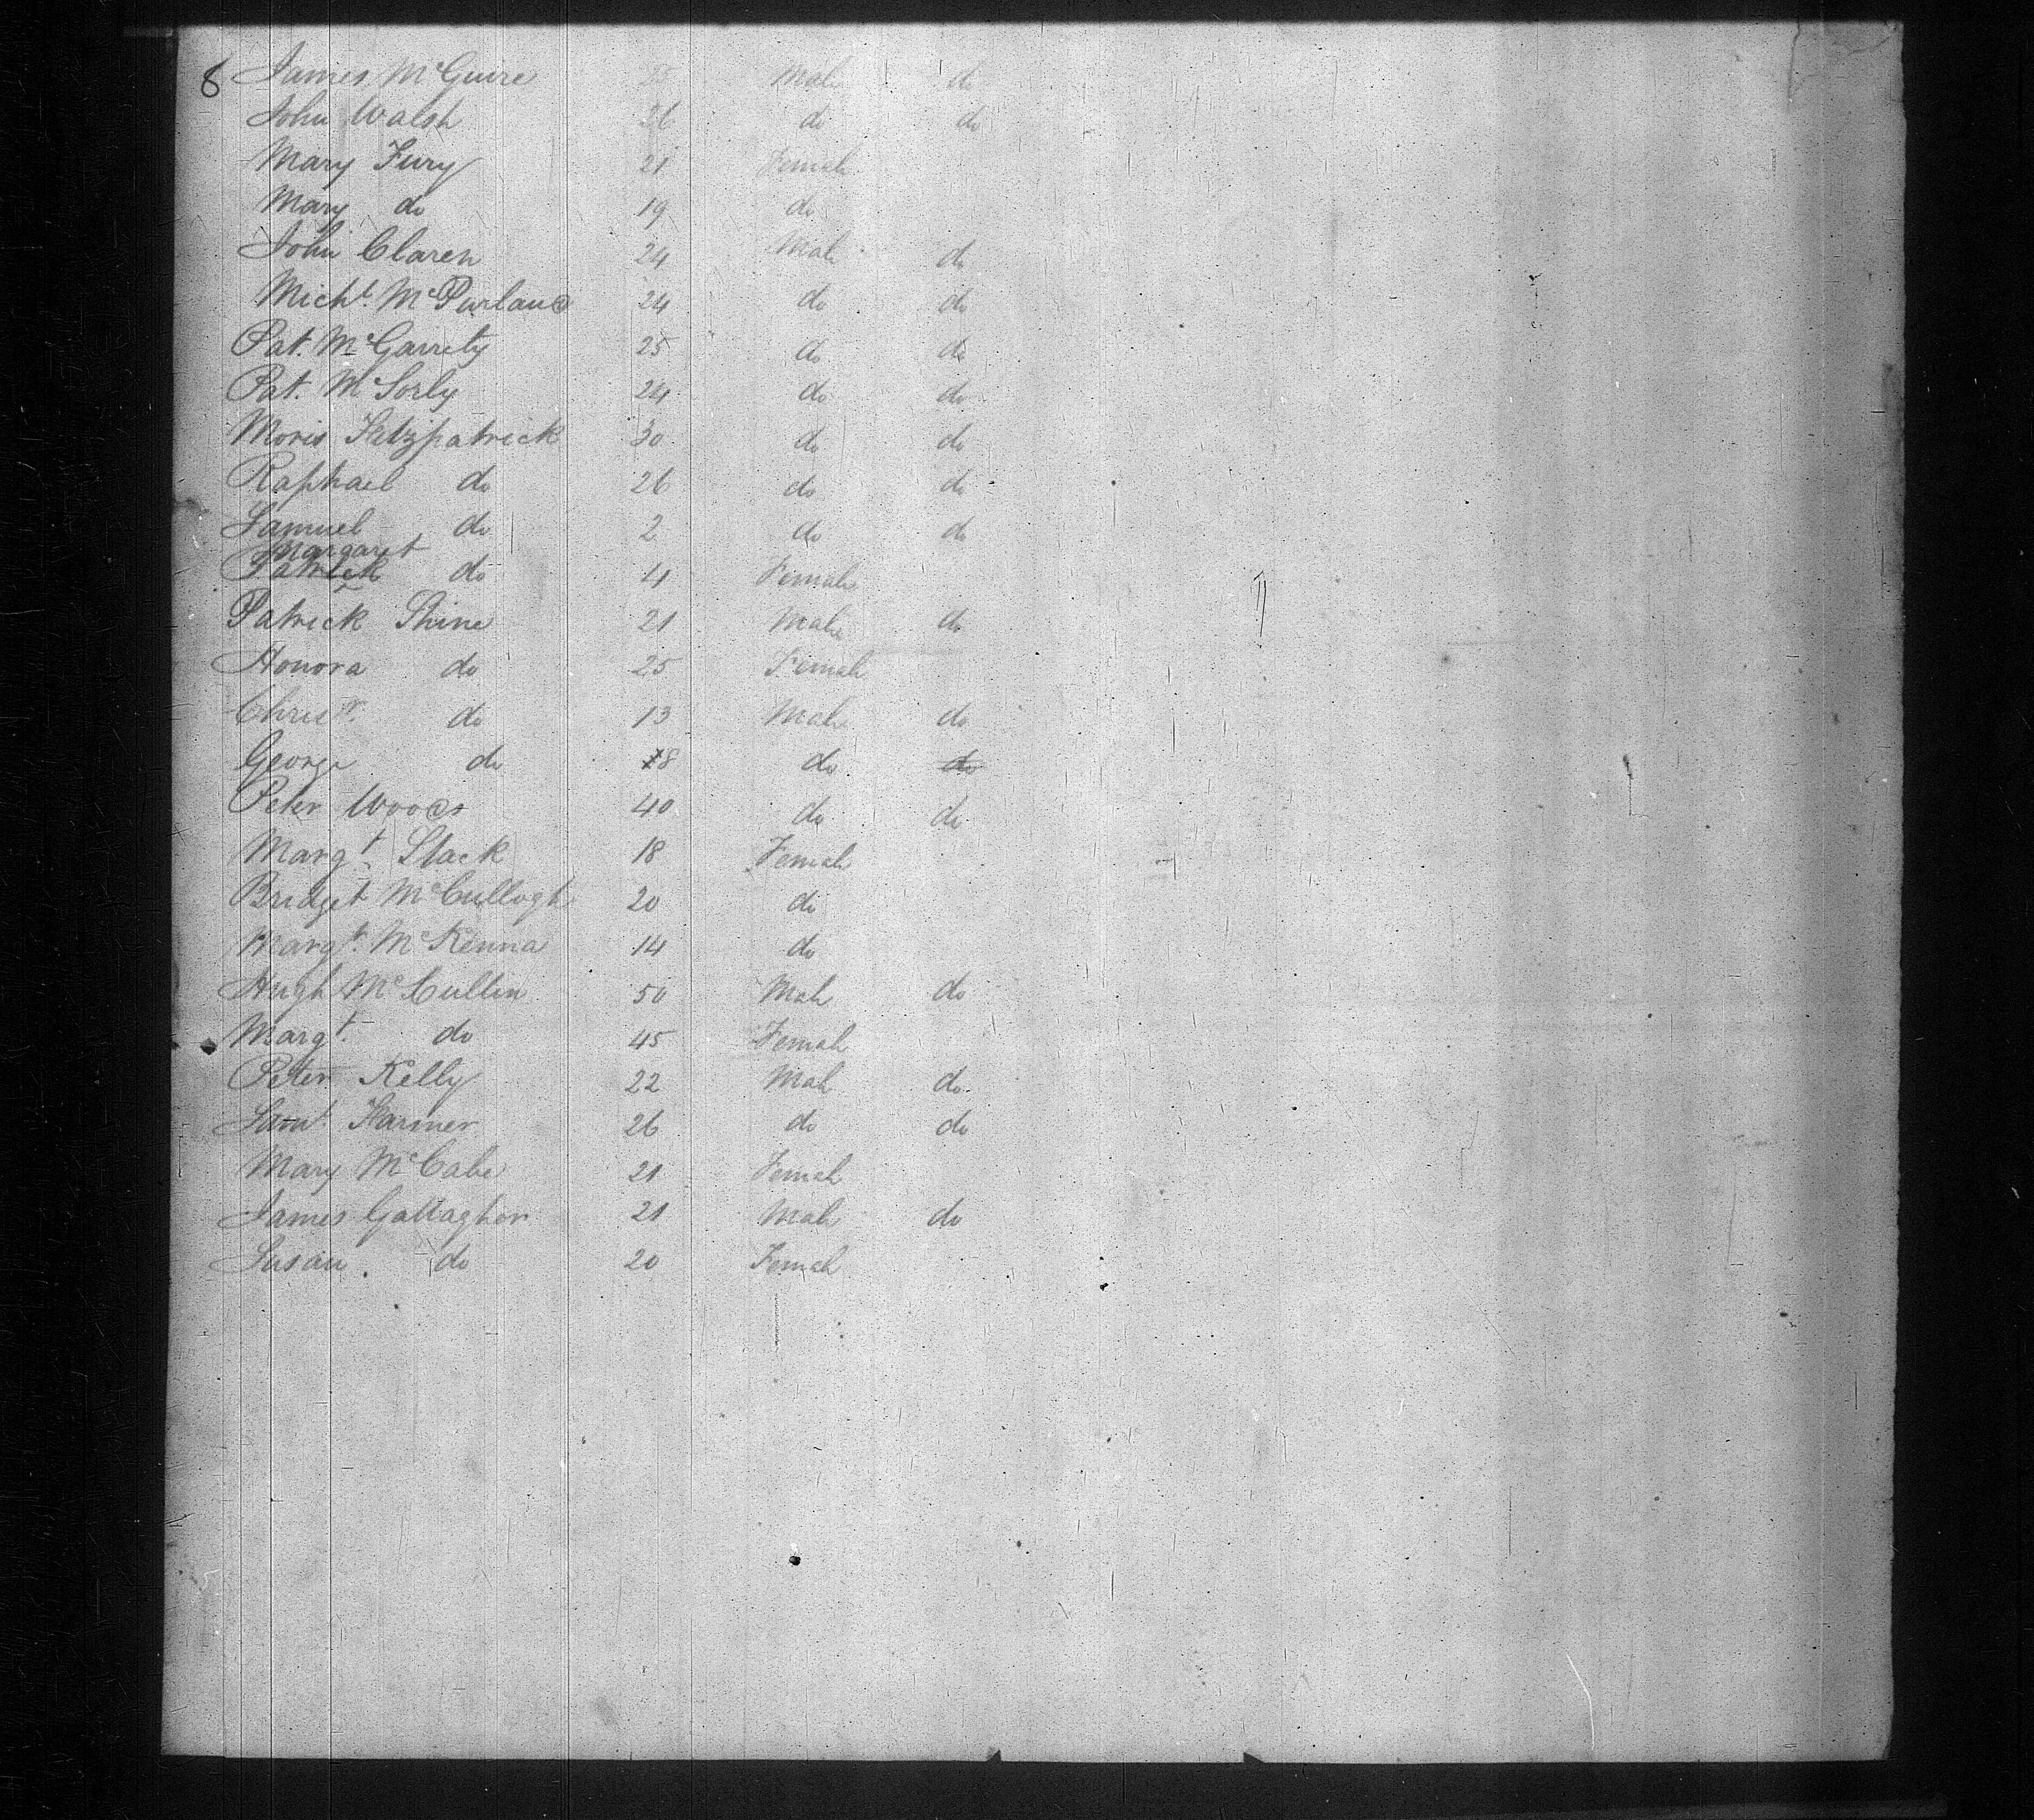 8 James McGuire Male do
John Walsh 26 do do
Mary Fury 21 Female
Mary do 19 do
John Claren 24 Male do
Michl. McPurland 24 do do
Pat. McGarrety 25 do do
Pat. McSorly 24 do do
Moris Fitzpatrick 30 do do
Raphael do 26 do do
Samuel do 2 do do
Margaret
Patrick do 4 Female
Patrick Shine 21 Male do
Honora do 25 Female
Christr. do 13 Male do
George do 8 do do
Peter Woods 40 do do
Margt. Slack 18 Female
Bridget McCullogh 20 do
Margt. McKenna 14 do
Hugh McCullin 50 Male do
Margt. do 45 Female
Peter Kelly 22 Male do
Saml. Harmer 26 do do
Mary McCabe 21 Female
James Gallagher 21 Male do
Susan do 20 Female